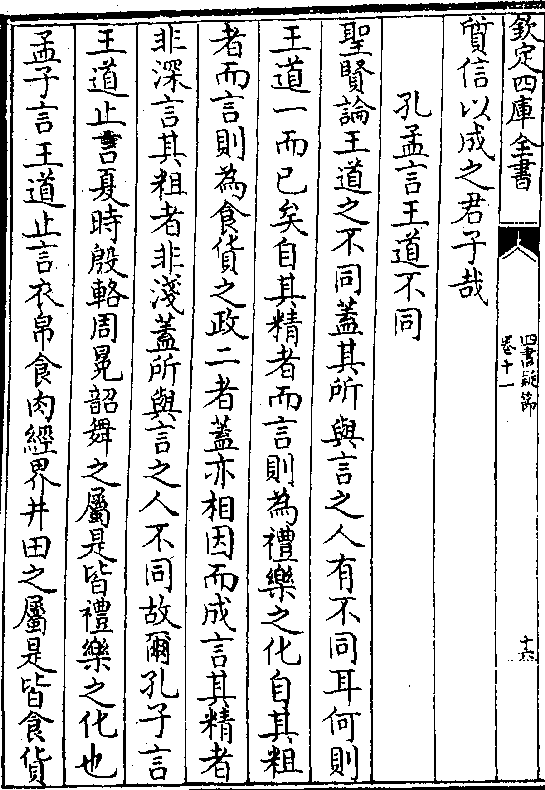 欽定四庫全書
四書疑節
卷十一
十六
質信以成之君子哉
孔孟言王道不同
聖賢論王道之不同蓋其所與言之人有不同耳何則
王道一而已矣自其精者而言則為禮樂之化自其粗
者而言則為食貨之政二者蓋亦相因而成言其精者
非深言其粗者非淺蓋所與言之人不同故爾孔子言
王道止言夏時殷輅周冕韶舞之屬是皆禮樂之化也
孟子言王道止言衣帛食肉經界井田之屬是皆食貨